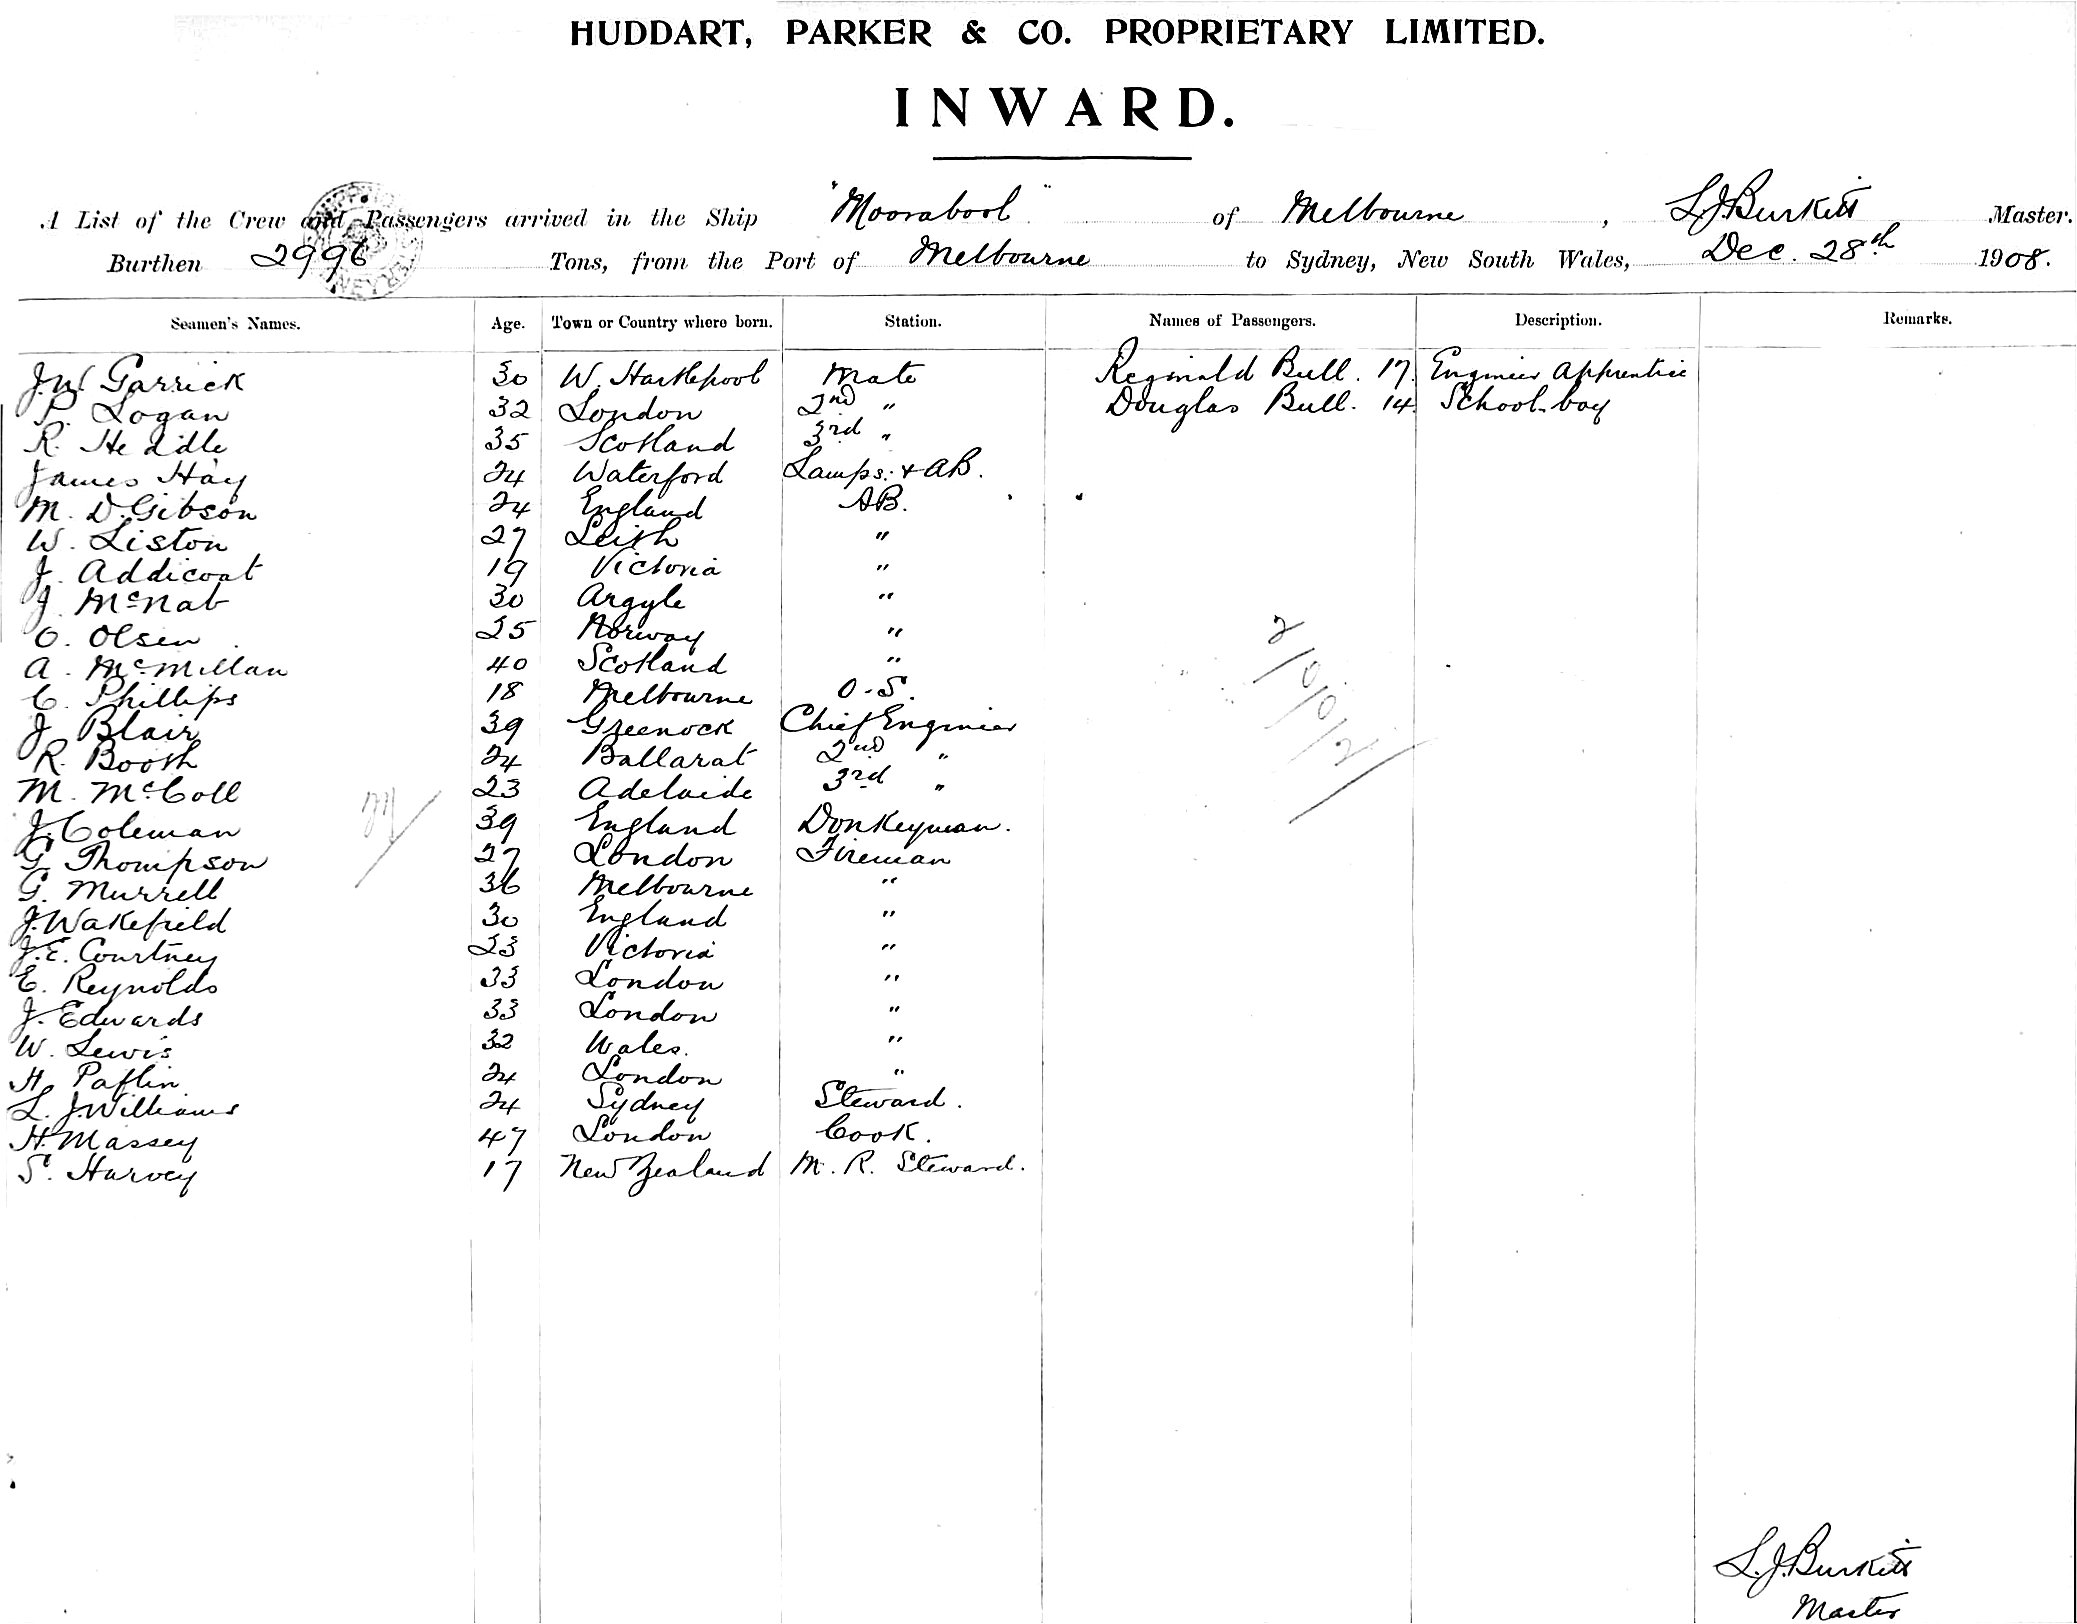 HUDDART, PARKER & CO. PROPRIETARY LIMITED.
INWARD.
A List of the Crew and Passengers arrived in the Ship "Moorabool" of Melbourne, L J Burkitt Master.
Burthen 2996 Tons, from the Port of Melbourne to Sydney, New South Wales, Dec. 28th 1908.
Seamen's Names. Age. Town or Country where born. Station. Names of Passengers. Description. Remarks.
J. W. Garrick 30 W. Hartlepool Mate Reginald Bull. 17. Engineer Apprentice
P. Logan 32 London 2nd " Douglas Bull. 14. School-boy
R. Heddle 35 Scotland 3rd "
James Hay 24 Waterford Lamps. & AB.
M. D. Gibson 24 England AB.
W. Liston 27 Leith "
J. Addicoat 19 Victoria "
J. McNab 30 Argyle "
O. Olsen 25 Norway "
A. McMillan 40 Scotland "
C. Phillips 18 Melbourne O.S.
J. Blair 39 Greenock Chief Engineer
R. Booth 24 Ballarat 2nd "
M. McColl 23 Adelaide 3rd "
J. Coleman 39 England Donkeyman.
G. Thompson 27 London Fireman
G. Murrell 36 Melbourne "
J. Wakefield 30 England "
J. E. Courtney 23 Victoria "
E. Reynolds 33 London "
J. Edwards 33 London "
W. Lewis 32 Wales. "
H. Paflin 24 London "
L. J. Williams 24 Sydney Steward.
H. Massey 47 London Cook.
S. Harvey 17 New Zealand M. R. Steward.
L. J. Burkitt
Master